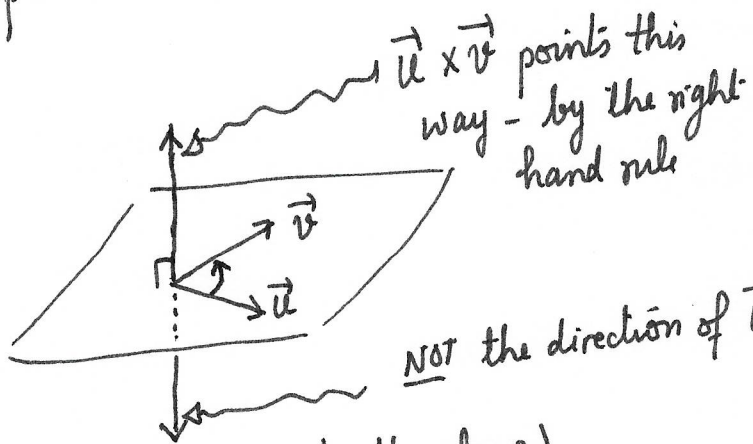 u⃗ × v⃗ points this
way - by the right
hand rule
v⃗
u⃗
NOT the direction of